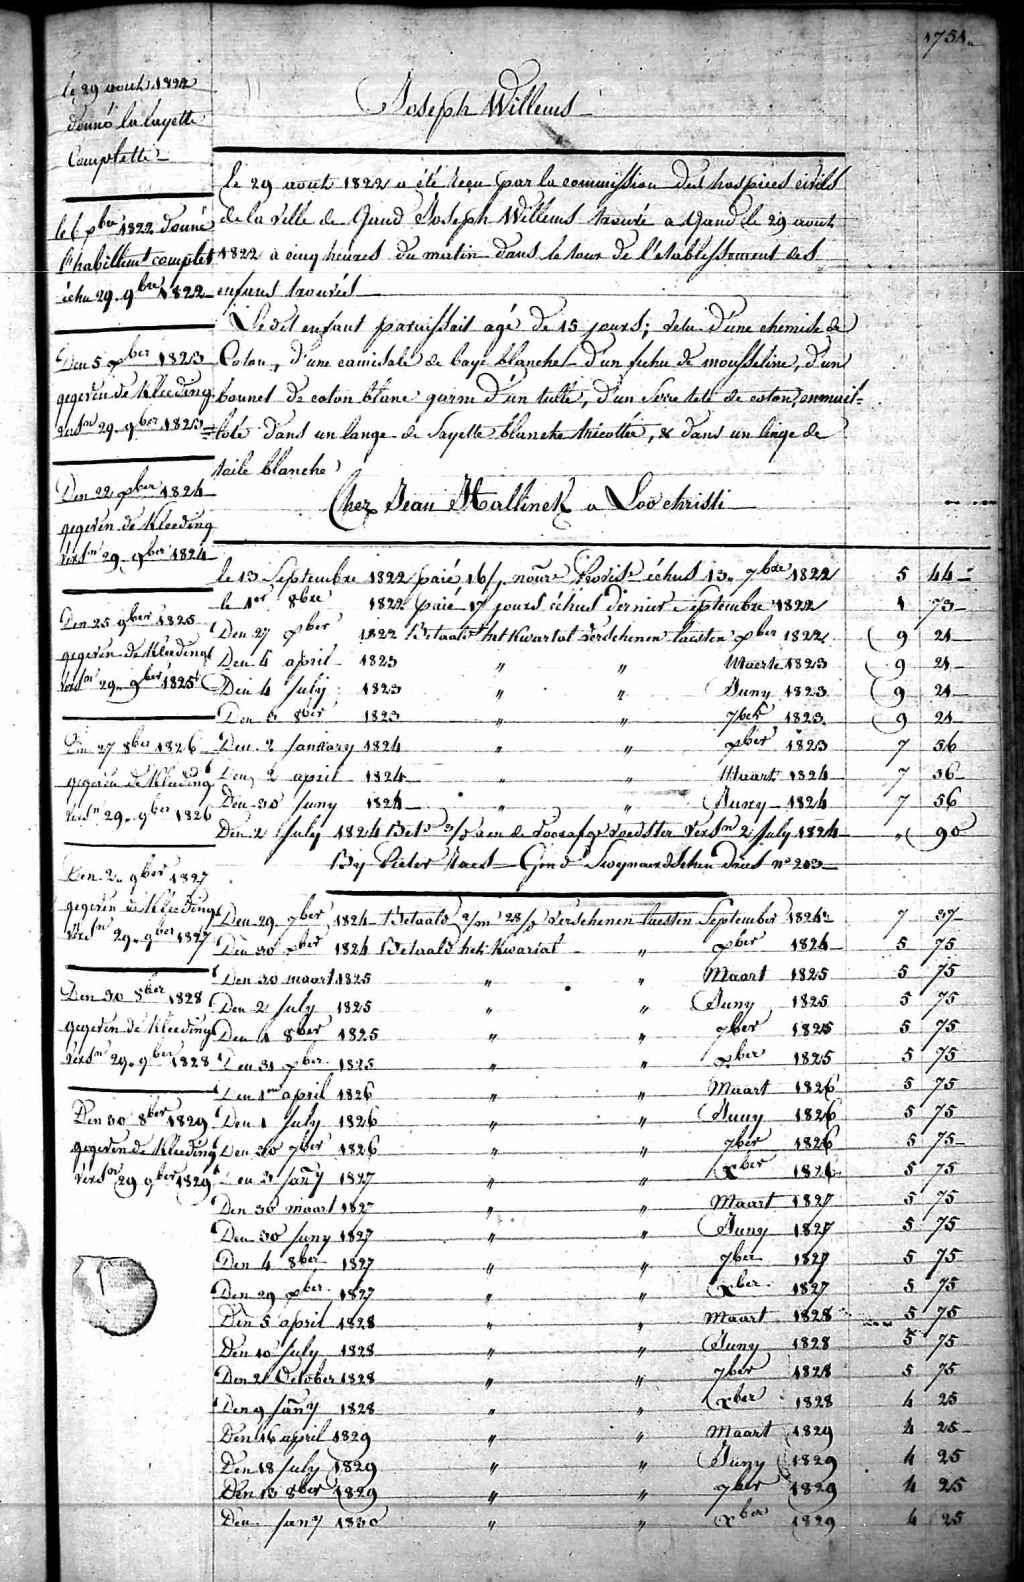 1751.
Joseph Willems
le 29 aout 1822
donné la layette
Complette
le 6 xbre 1822 donné
l'habillemt complet
échu 29. 9bre 1822
Den 5 xber 1823
gegeven de Kleeding
versn 29. 9ber 1823
Den 22 xber 1824
gegeven de Kleeding
versn 29. 9ber 1824
Den 25 9ber 1825
gegeven de Kleeding
versn 29. 9ber 1825
Den 27 8ber 1826
gegeven de Kleeding
versn 29. 9ber 1826
Den 2. 9ber 1827
gegeven de Kleeding
versn 29. 9ber 1827
Den 30 8ber 1828
gegeven de Kleeding
versn 29. 9ber 1828
Den 30 8ber 1829
gegeven de Kleeding
versn 29 9ber 1829
le 29 aout 1822 a été reçu par la commission des hospices civils
de la ville de Gand Joseph Willems trouvé a Gand le 29 aout
1822 à cinq heures du matin dans le tour de l'etablissement des
enfans trouvés
Le dit enfant paraissait agé de 15 jours; vetu d'une chemise de
Coton, d'une camisole de baye blanche d'un fichu de mousseline, d'un
bonnet de coton blanc garni d'un tulle, d'un serre tete de coton, emmail-
loté dans un lange de sayette blanche tricottée, & dans un linge de
toile blanche
Chez Jean Hallinck a Loochristi
le 13 Septembre 1822 paié 16/. nourre Provise échus 13. 7bre 1822 5 44
le 1er 8bre 1822 paié 17 jours échus dernier Septembre 1822 1 73
Den 27 xber 1822 Betaald het Kwartal verschenen laesten xber 1822 9 21
Den 4 april 1823 " " Maert 1823 9 21
Den 4 july 1823 " " Juny 1823 9 21
Den 3 8ber 1823 " " 7ber 1823 9 21
Den 2 January 1824 " " xber 1823 7 56
Den 2 april 1824 " " Maart 1824 7 56
Den 30 juny 1824 " " Juny 1824 7 56
Den 2 july 1824 Betd aen de voorafge voedster versn 2 july 1824 " 90
By Pieter Naes Gend Swynaerdschen Driesch No 203
Den 29 7ber 1824 Betaald verschenen laesten September 1824 7 37
Den 30 xber 1824 Betaald het Kwartal " xber 1824 5 75
Den 30 maart 1825 " " Maart 1825 5 75
Den 2 july 1825 " " Juny 1825 5 75
Den 4 8ber 1825 " " 7ber 1825 5 75
Den 31 xber 1825 " " xber 1825 5 75
Den 1en april 1826 " " Maart 1826 5 75
Den 1 july 1826 " " Juny 1826 5 75
Den 30 7ber 1826 " " 7ber 1826 5 75
Den 3 jany 1827 " " xber 1826 5 75
Den 30 maart 1827 " " Maart 1827 5 75
Den 30 juny 1827 " " Juny 1827 5 75
Den 4 8ber 1827 " " 7ber 1827 5 75
Den 29 xber 1827 " " xber 1827 5 75
Den 5 april 1828 " " Maart 1828 5 75
Den 10 july 1828 " " Juny 1828 5 75
Den 21 October 1828 " " 7ber 1828 5 75
Den 9 jany 1828 " " xber 1828 4 25
Den 16 april 1829 " " Maart 1829 4 25
Den 18 july 1829 " " Juny 1829 4 25
Den 13 8ber 1829 " " 7ber 1829 4 25
Den jany 1830 " " xber 1829 4 25